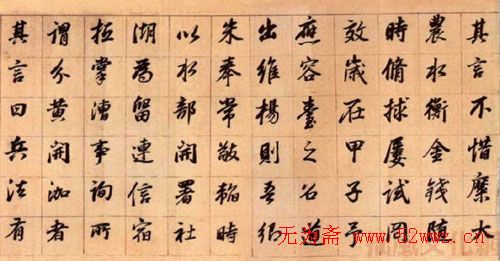 其言不惜糜大
農水衡金錢随
時脩捄屡試罔
效歲在甲子予
應容臺之召道
出維楊則吾師
朱奉常敬韜時
以水部開署社
湖為留連信宿
抵掌漕事詢所
謂分黄開泇者
其言曰兵法有
无为斋 www.52wwz.cn